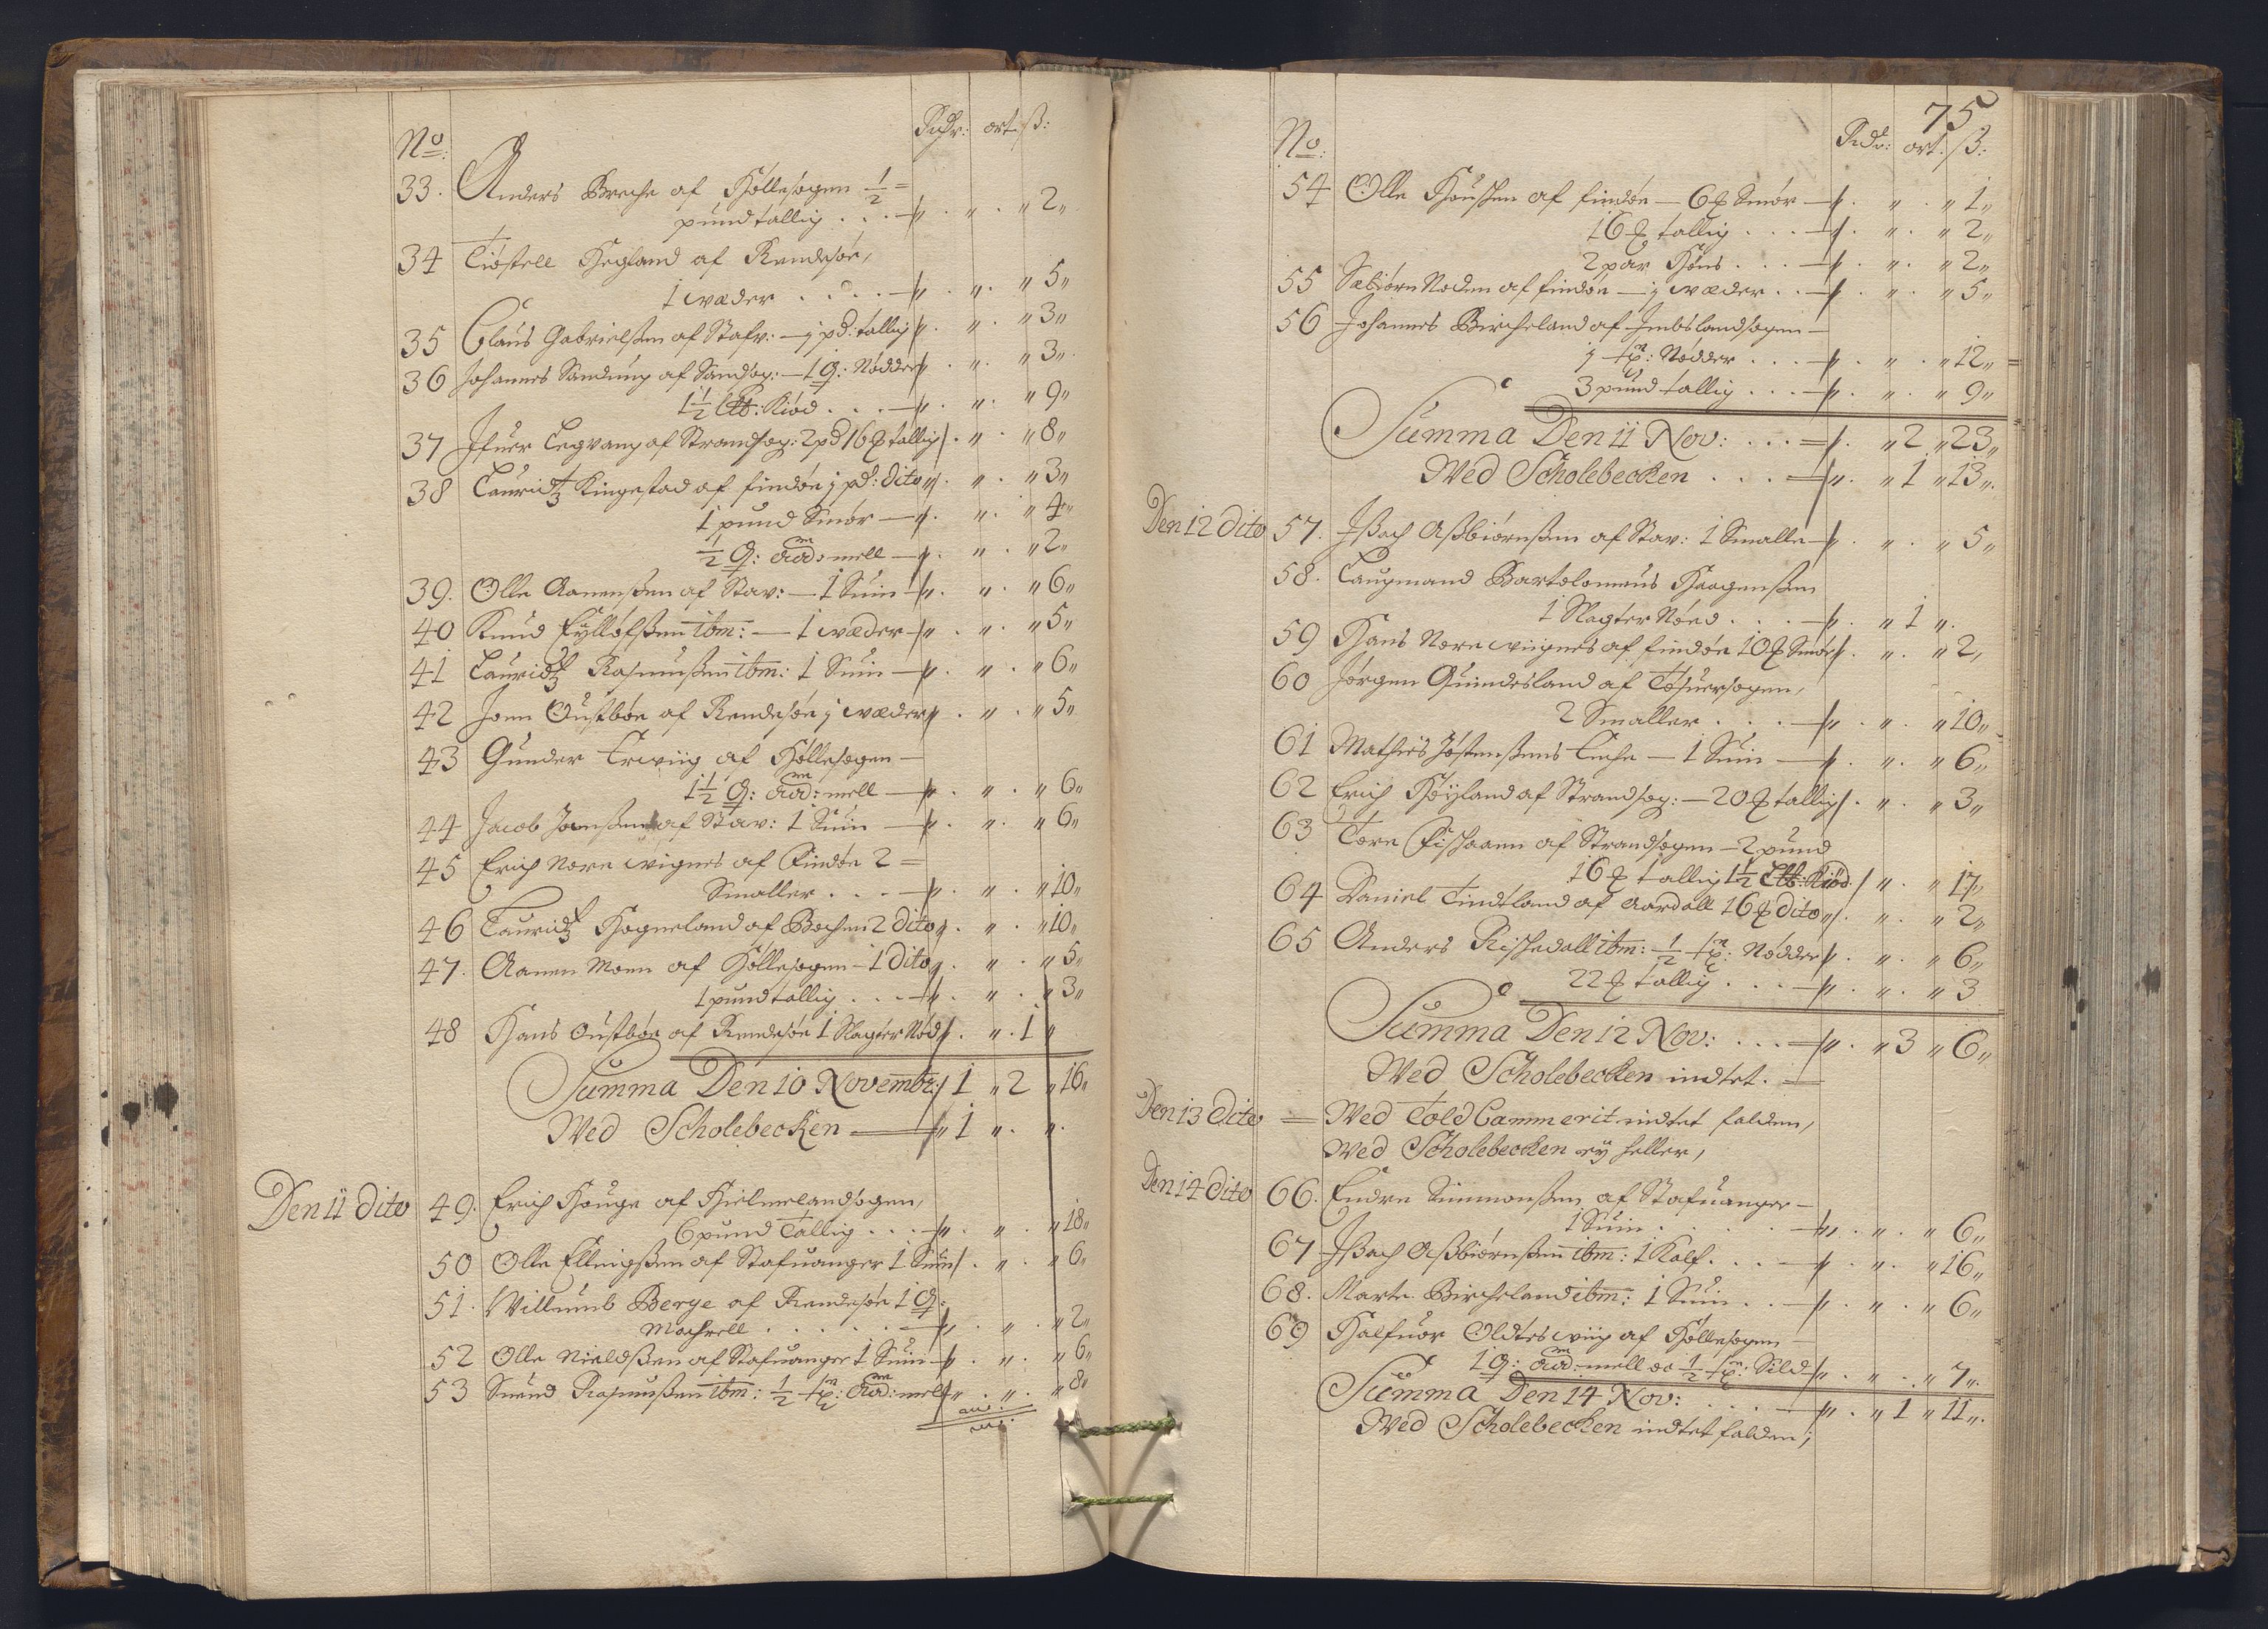 No: Rixdr: ort. ß:
33. Anders Breche af Hóllesogen ½ =
pund tallig . . . — „ . „ . „ 2 „
34 Tióstell Hegland af Rendesóe,
1 wæder . . . . — „ . „ . „ 5 „
35 Claus Gabrielßen af Stafv: — j pd: tallig „ . „ . „ 3 „
36 Johannes Sandung af Sandsog: — 1 q: Nódder „ . „ . „ 3 „
1½ Lb: Kiód . . . — „ . „ . „ 9 „
37 Ifuer af Strandsog: 2 pd 16 ℔ tallig . „ . „ 8 „
38 Lauridtz Kingestad af findóe j pd: dito „ . „ . „ 3 „
1 pund Smór — „ . „ . „ 4 „
½ q: aad: mell — „ . „ . „ 2 „
39. Olle Aanenßen af Stav: — 1 Suin — „ . „ . „ 6 „
40 Knud Eyllófßen ibm: — 1 wæder — „ . „ . „ 5 „
41 Lauridtz Rasmußen ibm: 1 Suin — „ . „ . „ 6 „
42 Jonn Oustbóe af Rendesóe j wæder „ . „ . „ 5 „
43 Gunder Trwiig af Hóllesogen —
1½ q: aad: mell — „ . „ . „ 6 „
44 Jacob Jonßen af Stav: 1 Suin — „ . „ . „ 6 „
45 Erich Nore wignes af Findóe 2 =
Smaller . . . — „ . „ . „ 10 „
46 Lauridtz Hogneland af Bochen 2 dito „ . „ . „ 10 „
47. Aanen Moen af Hóllesogen — 1 dito „ . „ . „ 5 „
1 pund tallig . . . — „ . „ . „ 3 „
48 Hans Oustbóe af Rendesóe 1 Slagter Nód . „ . 1 „
Summa Den 10 Novembr: 1 „ 2 „ 16 „
Wed Scholebecken — „ 1 „ . „ .
Den 11 dito 49. Erich Houge af Hielmelandsogen,
6 pund Tallig . . . — „ . „ . „ 18 „
50 Olle Ellingßen af Stafuanger 1 Suin . „ . „ 6 „
51. Willumb Berge af Rendesóe 1 q:
Machrell . . . . . — „ . „ . „ 2 „
52 Olle Nieldßen af Stafuanger 1 Suin — „ . „ . „ 6 „
53 Suend Rasmußen ibm: ½ tr: aad: mell „ . „ . „ 8 „
75
No: Rdr: ort: ß:
54 Olle Houshen af findóe — 6 ℔ Smór — „ . „ . „ 1 „
16 ℔ tallig . . . — „ . „ . „ 2 „
2 par Hóns . . . — „ . „ . „ 2 „
55 Sæbiórn Noden af findóe — j wæder . . — „ . „ . „ 5 „
56 Johannes Bircheland af Imbslandsogen —
j tr: Nódder . . . — „ . „ . „ 12 „
3 pund tallig . . . — „ . „ . „ 9 „
Summa Den 11 Nov: . . . = . „ 2 „ 23 „
Wed Scholebecken . . . = „ . „ 1 „ 13 „
Den 12 dito 57. Ißach Aßbiórnßen af Stav: 1 Smalle — „ . „ . „ 5 „
58. Laugmand Bartolomeus Haagenßen
1 Slagter Nóed . . . — „ . „ 1 „ .
59 Hans Nore wiignes af findóe 10 ℔ Smór . „ . „ 2 „
60 Jórgen Quindesland af Tósuersogen,
2 Smaller . . . — „ . „ . „ 10 „
61 Mathies Jóstenßens Enche — 1 Suin — „ . „ . „ 6 „
62 Erich Hóyland af Strandsog: — 20 ℔ tallig . „ . „ 3 „
63 Tore Fishaaen af Strandsogen — 2 pund
16 ℔ tallig 1½ Lb: Kiód „ . „ 17 „
64 Daniel Tindtland af Aardall 16 ℔ dito „ . „ . „ 2 „
65 Anders Rishedall ibm: ½ tr: Nódder „ . „ . „ 6 „
22 ℔ tallig . . . — „ . „ . „ 3
Summa Den 12 Nov: . . . — „ . „ 3 „ 6 „
Wed Scholebecken indtet. =
Den 13 dito = Wed Told Cammerit indtet falden,
Wed Scholebecken ey heller,
Den 14 dito 66. Endre Simmonßen af Stafuanger —
1 Suin . . . . . — „ . „ . „ 6 „
67 Ißach Aßbiórnßen ibm: 1 Kalf . . . — „ . „ . „ 16 „
68. Marte Bircheland ibm: 1 Suin . . — „ . „ . „ 6 „
69 Halfuor Oldtes wiig af Hóllesogen —
1 q: aad: mell oc ½ tr: Sild — „ . „ . „ 7 „
Summa Den 14 Nov: . . . — „ . „ 1 „ 11 „
Wed Scholebecken indtet falden;